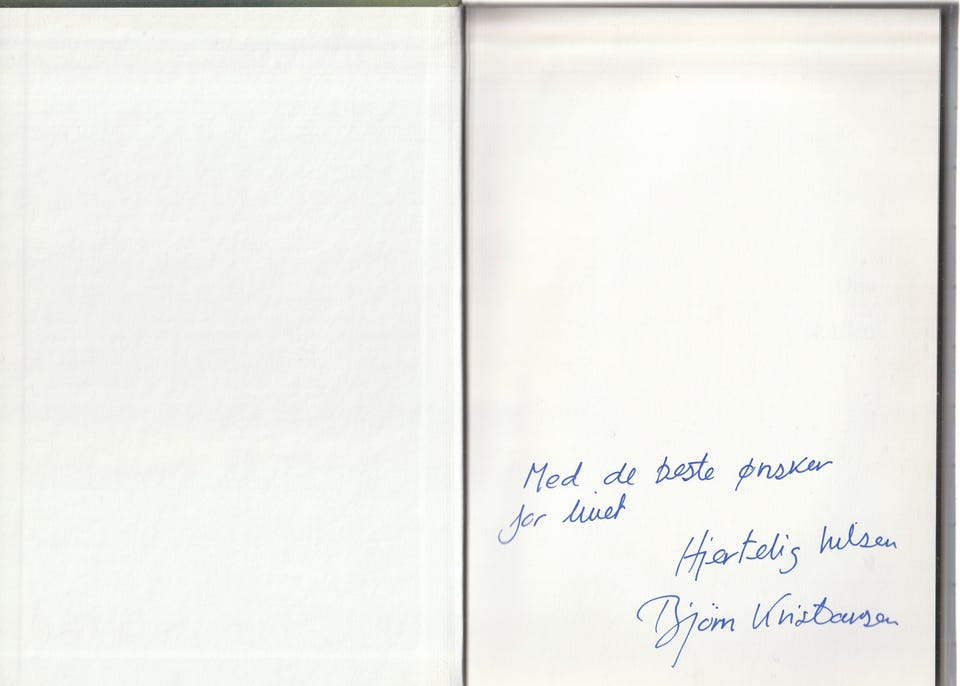 Med de beste ønsker
for livet
Hjertelig hilsen
Bjørn Kristiansen